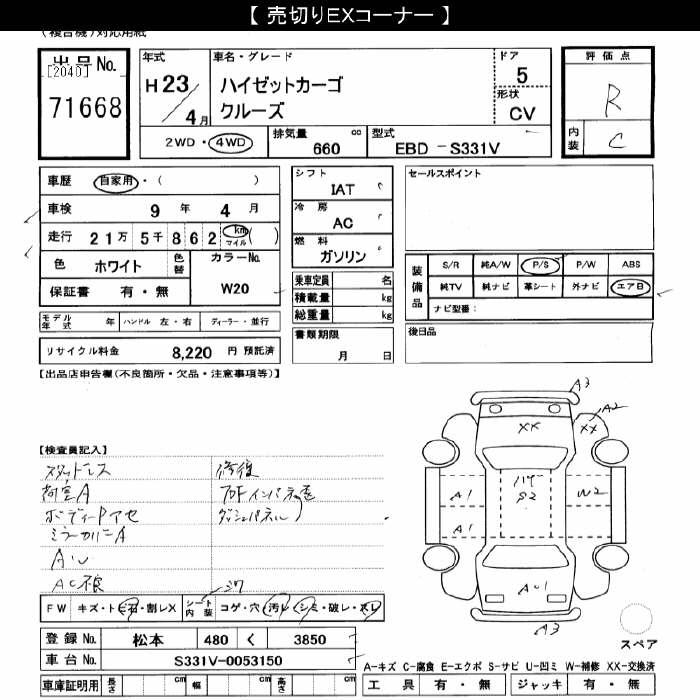 【 売切りEXコーナー 】
(複合機)対応用紙
出品No.
[2040]
71668
年式
H 23/4月
車名・グレード
ハイゼットカーゴ
クルーズ
ドア
5
形状
CV
評価点
R
内装
C
2WD・4WD
排気量 cc
660
型式
EBD - S331V
車歴 自家用・( )
車検 9 年 4 月
走行 21万 5千 862 km マイル ( )
色 ホワイト
色替
カラーNo.
W20
保証書 有・無
シフト
IAT
冷房
AC
燃料
ガソリン
乗車定員 名
積載量 kg
総重量 kg
セールスポイント
装備品
S/R 純A/W P/S P/W ABS
純TV 純ナビ 革シート 外ナビ エアB
ナビ型番:
モデル年式 年 ハンドル 左・右 ディーラー・並行
書類期限
月 日
後日品
リサイクル料金 8,220 円 預託済
【出品店申告欄(不良箇所・欠品・注意事項等)】
【検査員記入】
スタットレス
荷室A
ボディーPアセ
ミラーカバーA
AW
AC不良
修復
ダッシュパネル
A3
A2
XX
XX
S2
A1
A1
W2
A3
FW キズ・トビ石・割レX
シート内装 コゲ・穴・汚レ・シミ・破レ・スレ
登録No. 松本 480 く 3850
車台No. S331V-0053150
スペア
A-キズ C-腐食 E-エクボ S-サビ U-凹ミ W-補修 XX-交換済
車庫証明用 長さ cm 幅 cm 高さ cm
工具 有・無 ジャッキ 有・無